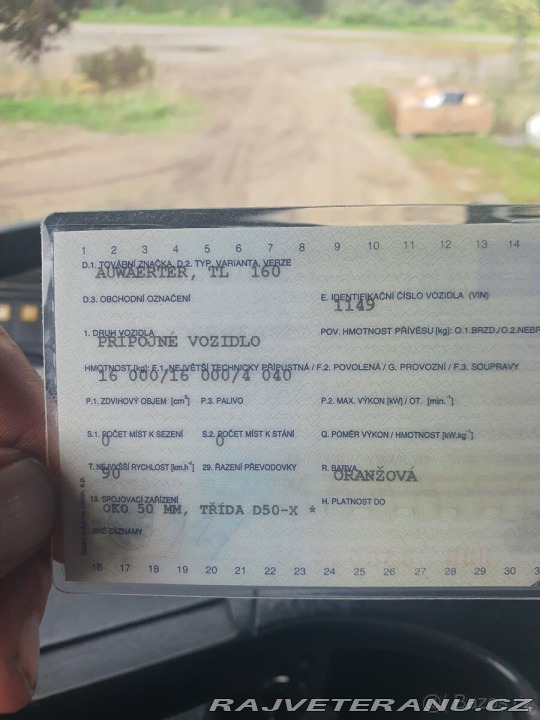 1 2 3 4 5 6 7 8 9 10 11 12 13 14
D.1. TOVÁRNÍ ZNAČKA, D.2. TYP, VARIANTA, VERZE
AUWAERTER, TL 160
D.3. OBCHODNÍ OZNAČENÍ E. IDENTIFIKAČNÍ ČÍSLO VOZIDLA (VIN)
1149
1. DRUH VOZIDLA POV. HMOTNOST PŘÍVĚSU [kg]: O.1.BRZD./O.2.NEBR
PŘÍPOJNÉ VOZIDLO
HMOTNOST [kg]: F.1. NEJVĚTŠÍ TECHNICKY PŘÍPUSTNÁ / F.2. POVOLENÁ / G. PROVOZNÍ / F.3. SOUPRAVY
16 000/16 000/4 040
P.1. ZDVIHOVÝ OBJEM [cm³] P.3. PALIVO P.2. MAX. VÝKON [kW] / OT. [min.⁻¹]
S.1. POČET MÍST K SEZENÍ S.2. POČET MÍST K STÁNÍ Q. POMĚR VÝKON / HMOTNOST [kW.kg⁻¹]
0 0
T. NEJVYŠŠÍ RYCHLOST [km.h⁻¹] 29. ŘAZENÍ PŘEVODOVKY R. BARVA
90 ORANŽOVÁ
19. SPOJOVACÍ ZAŘÍZENÍ H. PLATNOST DO
OKO 50 MM, TŘÍDA D50-X *
JINÉ ZÁZNAMY
16 17 18 19 20 21 22 23 24 25 26 27 28 29 30
RAJVETERANU.CZ